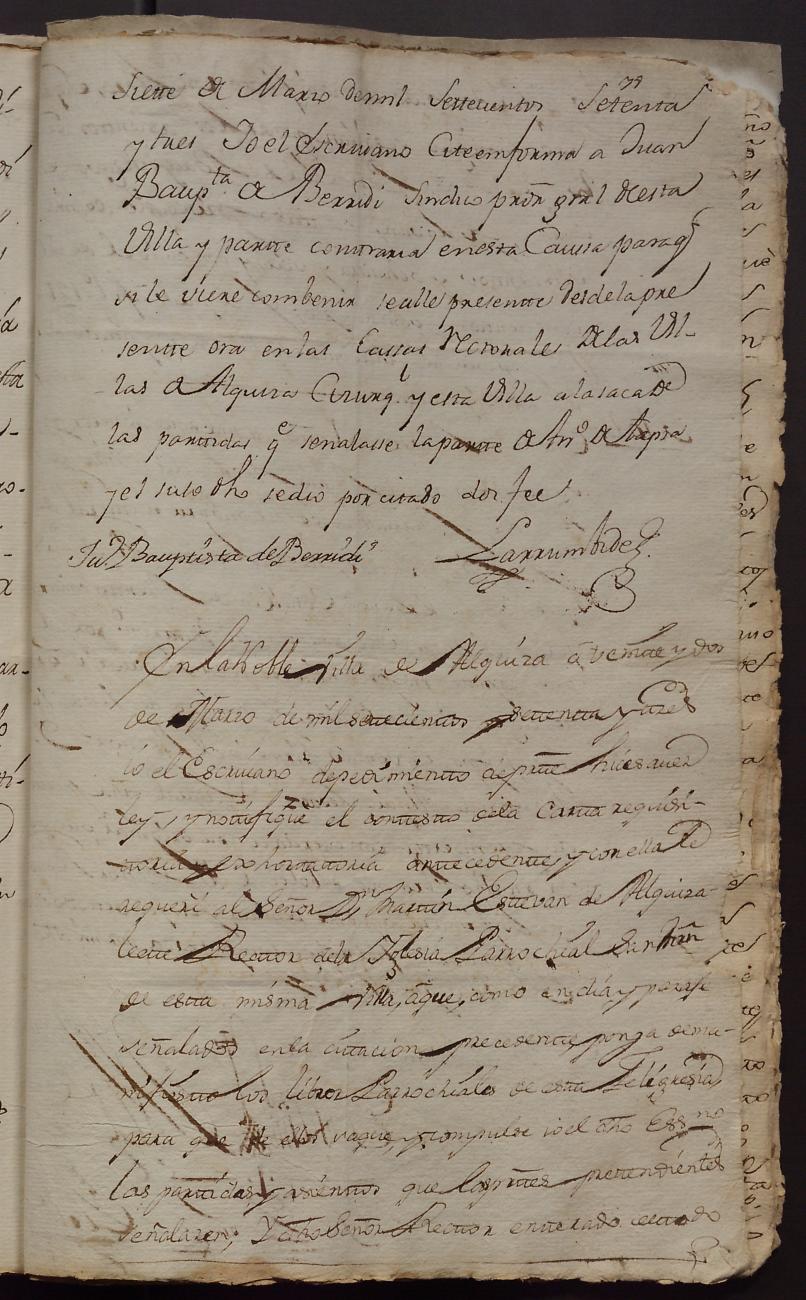 siette de Marzo de mil settecientos setenta
y tres Yo el Escriuano Cite en forma a Juan
Baupta de Berridi Sindico prór gral de esta
Villa y partte contraria en esta Causa para q
si le viere combenir se alle presentte desde la pre
sentte ora en las Cassas Rectorales de las Vi-
llas de Alquiza y esta Villa a la saca de
las partidas qe señalasse la partte de Anto de
y el suso dho se dio por citado doi fee
Jun Bauptista de Berridi Larrumbide
En la Noble Villa de Alquiza a veinte y dos
de Marzo de mil setecientos y settentta y tres
io el Escriuano de pedimientto de partte hice saver
ley, y notifique el contesto de la Cartta requisi-
toria y exhortattoria anttecedente y con ella
requeri al Señor Dn Marttin Esttevan de Alquiza-
lette Rector de la Iglesia Parrochial San Mrn
de estta misma Villa, a que, como en dia y paraje
señalados en la cittacion precedentte ponga de ma-
nifiestto los libros Parrochiales de estta Feligresia
para que de ellos saque, y compulse io el dho Essno
las parttidas y asienttos que las prttes prettendienttes
señalaren; Y dho Señor Rector entterado